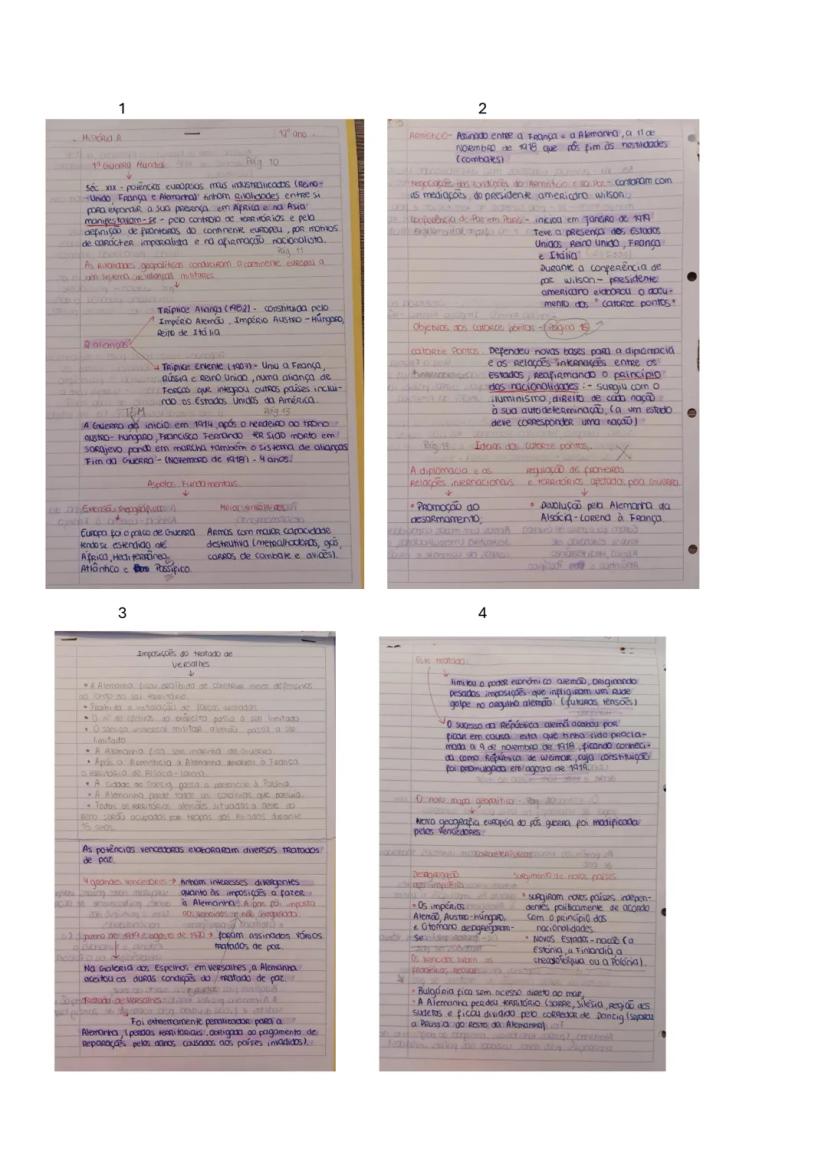 1
História A
12º ano
1ª Guerra Mundial Pág. 10
Séc. XIX - potências europeias mais industrializadas (Reino-
-Unido, França e Alemanha) tinham rivalidades entre si
para expandir a sua presença em África e na Ásia
manifestavam-se - pelo controlo de territórios e pela
definição de fronteiras do continente europeu, por motivos
de carácter imperialista e na afirmação nacionalista.
Pág. 11
As rivalidades geopolíticas conduziram o continente europeu a
um sistema de alianças militares.
Tríplice Aliança (1882) - constituída pelo
Império Alemão, Império Austro-Húngaro,
Reino de Itália
2 alianças
Tríplice Entente (1907) - Uniu a França,
Rússia e Reino Unido, numa aliança de
Forças que integrou outros países inclui-
ndo os Estados Unidos da América.
Pág. 13
A Guerra dá início em 1914, após o herdeiro ao trono
austro-húngaro, Francisco Fernando ter sido morto em
Sarajevo pondo em marcha também o sistema de alianças
Fim da Guerra - (Novembro de 1918) - 4 anos.
Aspetos Fundamentais
Extensão geográfica
Europa foi o palco de Guerra
tendo-se estendido até
África, Mediterrâneo,
Atlântico e Pacífico.
Armas com maior capacidade
destrutiva (metralhadoras, gás,
carros de combate e aviões).
2
Armistício - Assinado entre a França e a Alemanha, a 11 de
novembro de 1918 que pôs fim às hostilidades
(combates)
Negociações das condições do Armistício e da Paz - contaram com
as mediações, do presidente americano Wilson.
Conferência de Paz em Paris - iniciou em Janeiro de 1919
Teve a presença dos Estados
Unidos, Reino Unido, França
e Itália
Durante a conferência de
paz Wilson - presidente
americano elaborou o docu-
mento dos "catorze pontos"
Objetivos dos catorze pontos - (Página 15)
catorze Pontos Defendeu novas bases para a diplomacia
e as relações internações entre os
estados, reafirmando o princípio
das nacionalidades :- surgiu com o
iluminismo, direito de cada nação
à sua autodeterminação, (a um estado
deve corresponder uma nação)
Ideias dos catorze pontos.
A diplomacia e as
Relações internacionais
• Promoção do
desarmamento;
regulação de fronteiras
e territórios afetados pela guerra
• Devolução pela Alemanha da
Alsácia-Lorena à França.
3
Imposições do tratado de
Versalhes
• A Alemanha ficou proibida de construir meios defensivos
ao longo do seu território.
• Proibida a instalação de forças armadas
• O nº de efetivos do exército passa a ser limitado
• O serviço universal militar alemão passa a ser
limitado
• A Alemanha fica sem marinha de Guerra.
• Após o Armistício a Alemanha devolveu à França
o território de Alsácia-Lorena.
• A cidade de Danzig passa a pertencer à Polónia.
• A Alemanha perde todas as colónias que possuía.
• Todos os territórios alemães situados a oeste do
Reno serão ocupados por tropas dos Aliados durante
15 anos.
As potências vencedoras elaboraram diversos tratados
de paz.
4 grandes vencedores → Tinham interesses divergentes
quanto às imposições a fazer
à Alemanha. A paz foi imposta
aos vencidos e não negociada.
junho de 1919 e agosto de 1920 → foram assinados vários
tratados de paz.
Na Galeria dos Espelhos em Versalhes, a Alemanha
aceitou as duras condições do tratado de paz.
Tratado de Versalhes
Foi extremamente penalizador para a
Alemanha, (perdas territoriais, obrigada ao pagamento de
reparações pelos danos causados aos países invadidos).
4
Este tratado:
limitou o poder económico alemão, originando
pesadas imposições que infligiram um rude
golpe no orgulho alemão (futuras tensões)
O sucesso da República alemã acabou por
ficar em causa esta que tinha sido procla-
mada a 9 de novembro de 1918, ficando conheci-
da como República de Weimar, cuja constituição
foi promulgada em agosto de 1919.
O novo mapa geopolítico - Pág. 20
Nova geografia europeia do pós guerra foi modificada
pelos vencedores
Desagregação
dos impérios
• Os impérios
Alemão, Austro-húngaro,
e Otomano desagregaram-
se
Surgimento de novos países
• surgiram novos países indepen-
dentes politicamente de acordo
com o princípio das
nacionalidades.
• Novos Estado-nação (a
Estónia, a Finlândia a
checoslováquia ou a Polónia).
Os vencidos viram as
fronteiras recuar
• Bulgária fica sem acesso direto ao mar,
• A Alemanha perdeu território (Sarre, Silésia, região dos
sudetas e ficou dividida pelo corredor de Danzig (separou
a Prússia do resto da Alemanha).